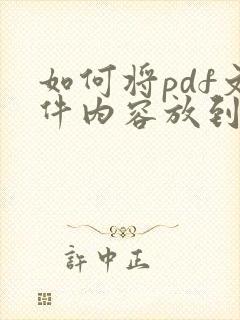 如何将pdf文
件内容放到
許中正